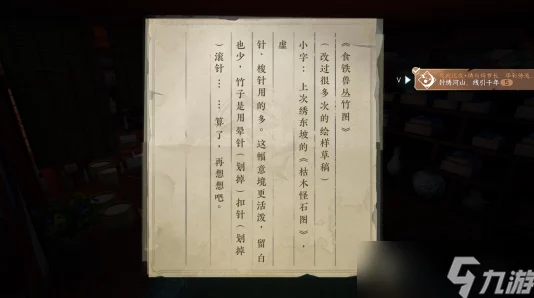 《食铁兽丛竹图》
（改过很多次的绘样草稿）
小字：上次绣东坡的《枯木怪石图》，
虚
针，梭针用的多。这幅意境更活泼，留白
也少，竹子是用晕针（划掉）扣针（划掉
）滚针……算了，再想想吧。
V
针绣河山，线引千年
九游